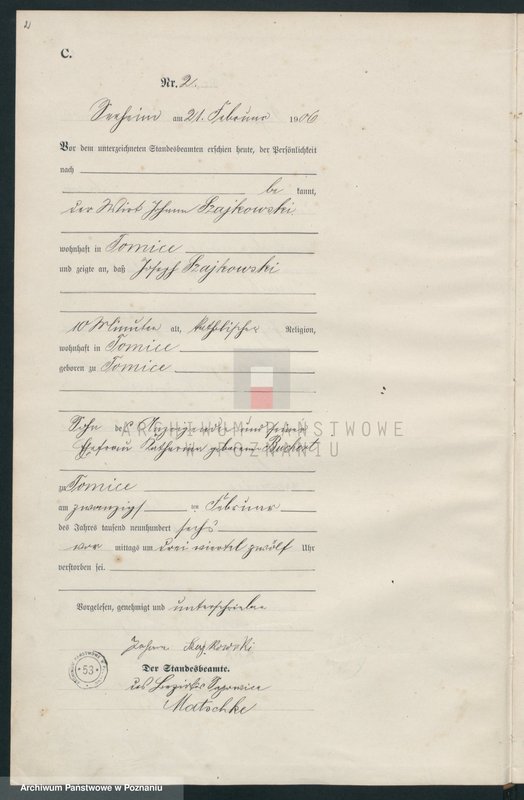 2
C.
Nr. 2.
Seeheim am 21. Februar 1906
Vor dem unterzeichneten Standesbeamten erschien heute, der Persönlichkeit
nach
be kannt,
der Wirt Johann Szajkowski
wohnhaft in Tomice
und zeigte an, daß Joseph Szajkowski
10 Minuten alt, katholischer Religion,
wohnhaft in Tomice
geboren zu Tomice
Sohn des Anzeigenden und seiner
Ehefrau Katharina geborenen
zu Tomice
am zwanzigsten Februar
des Jahres tausend neunhundert sechs
vor mittags um drei viertel zwölf Uhr
verstorben sei.
Vorgelesen, genehmigt und unterschrieben
Johann Szajkowski
Der Standesbeamte.
des Bezirks Sapowice
Matschke
53
ARCHIWUM PAŃSTWOWE
W POZNANIU
Archiwum Państwowe w Poznaniu